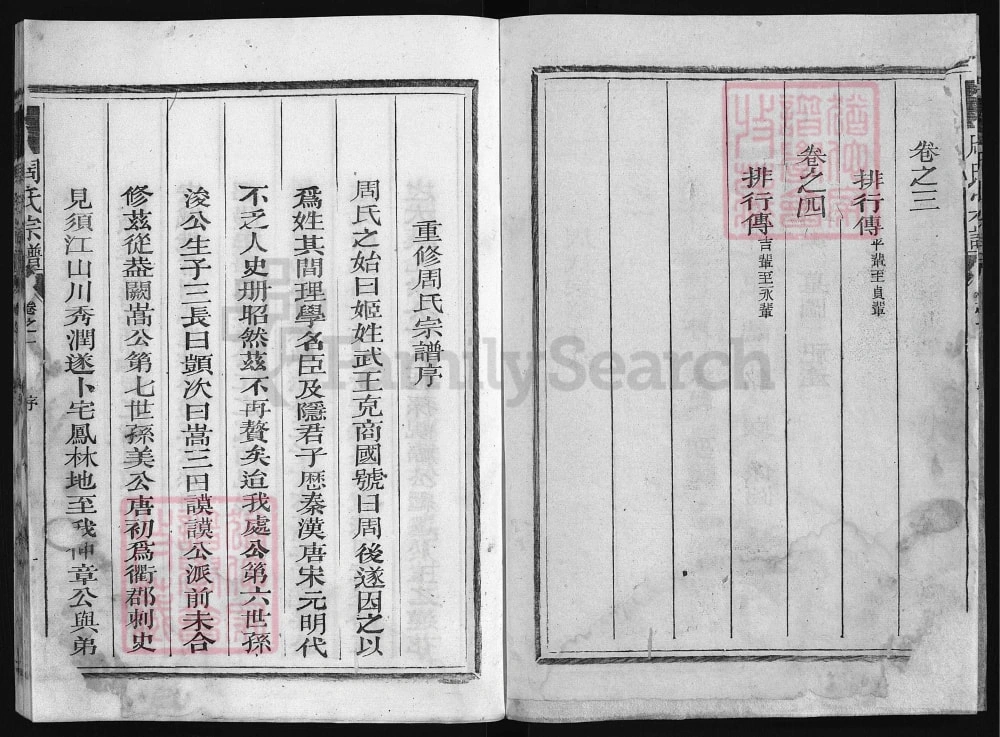 卷之三
排行傳平輩至貞輩
卷之四
排行傳吉輩至永輩
重修周氏宗譜序
周氏之始曰姬姓武王克商國號曰周後遂因之以
爲姓其間理學名臣及隱君子歷秦漢唐宋元明代
不乏人史册昭然茲不再贅矣迨我處公第六世孫
浚公生子三長曰顗次曰嵩三曰謨謨公派前未合
修茲從葢闕嵩公第七世孫美公唐初爲衢郡刺史
見須江山川秀潤遂卜宅鳳林地至我仲章公與弟
周氏宗譜
卷之一
序
一
FamilySearch